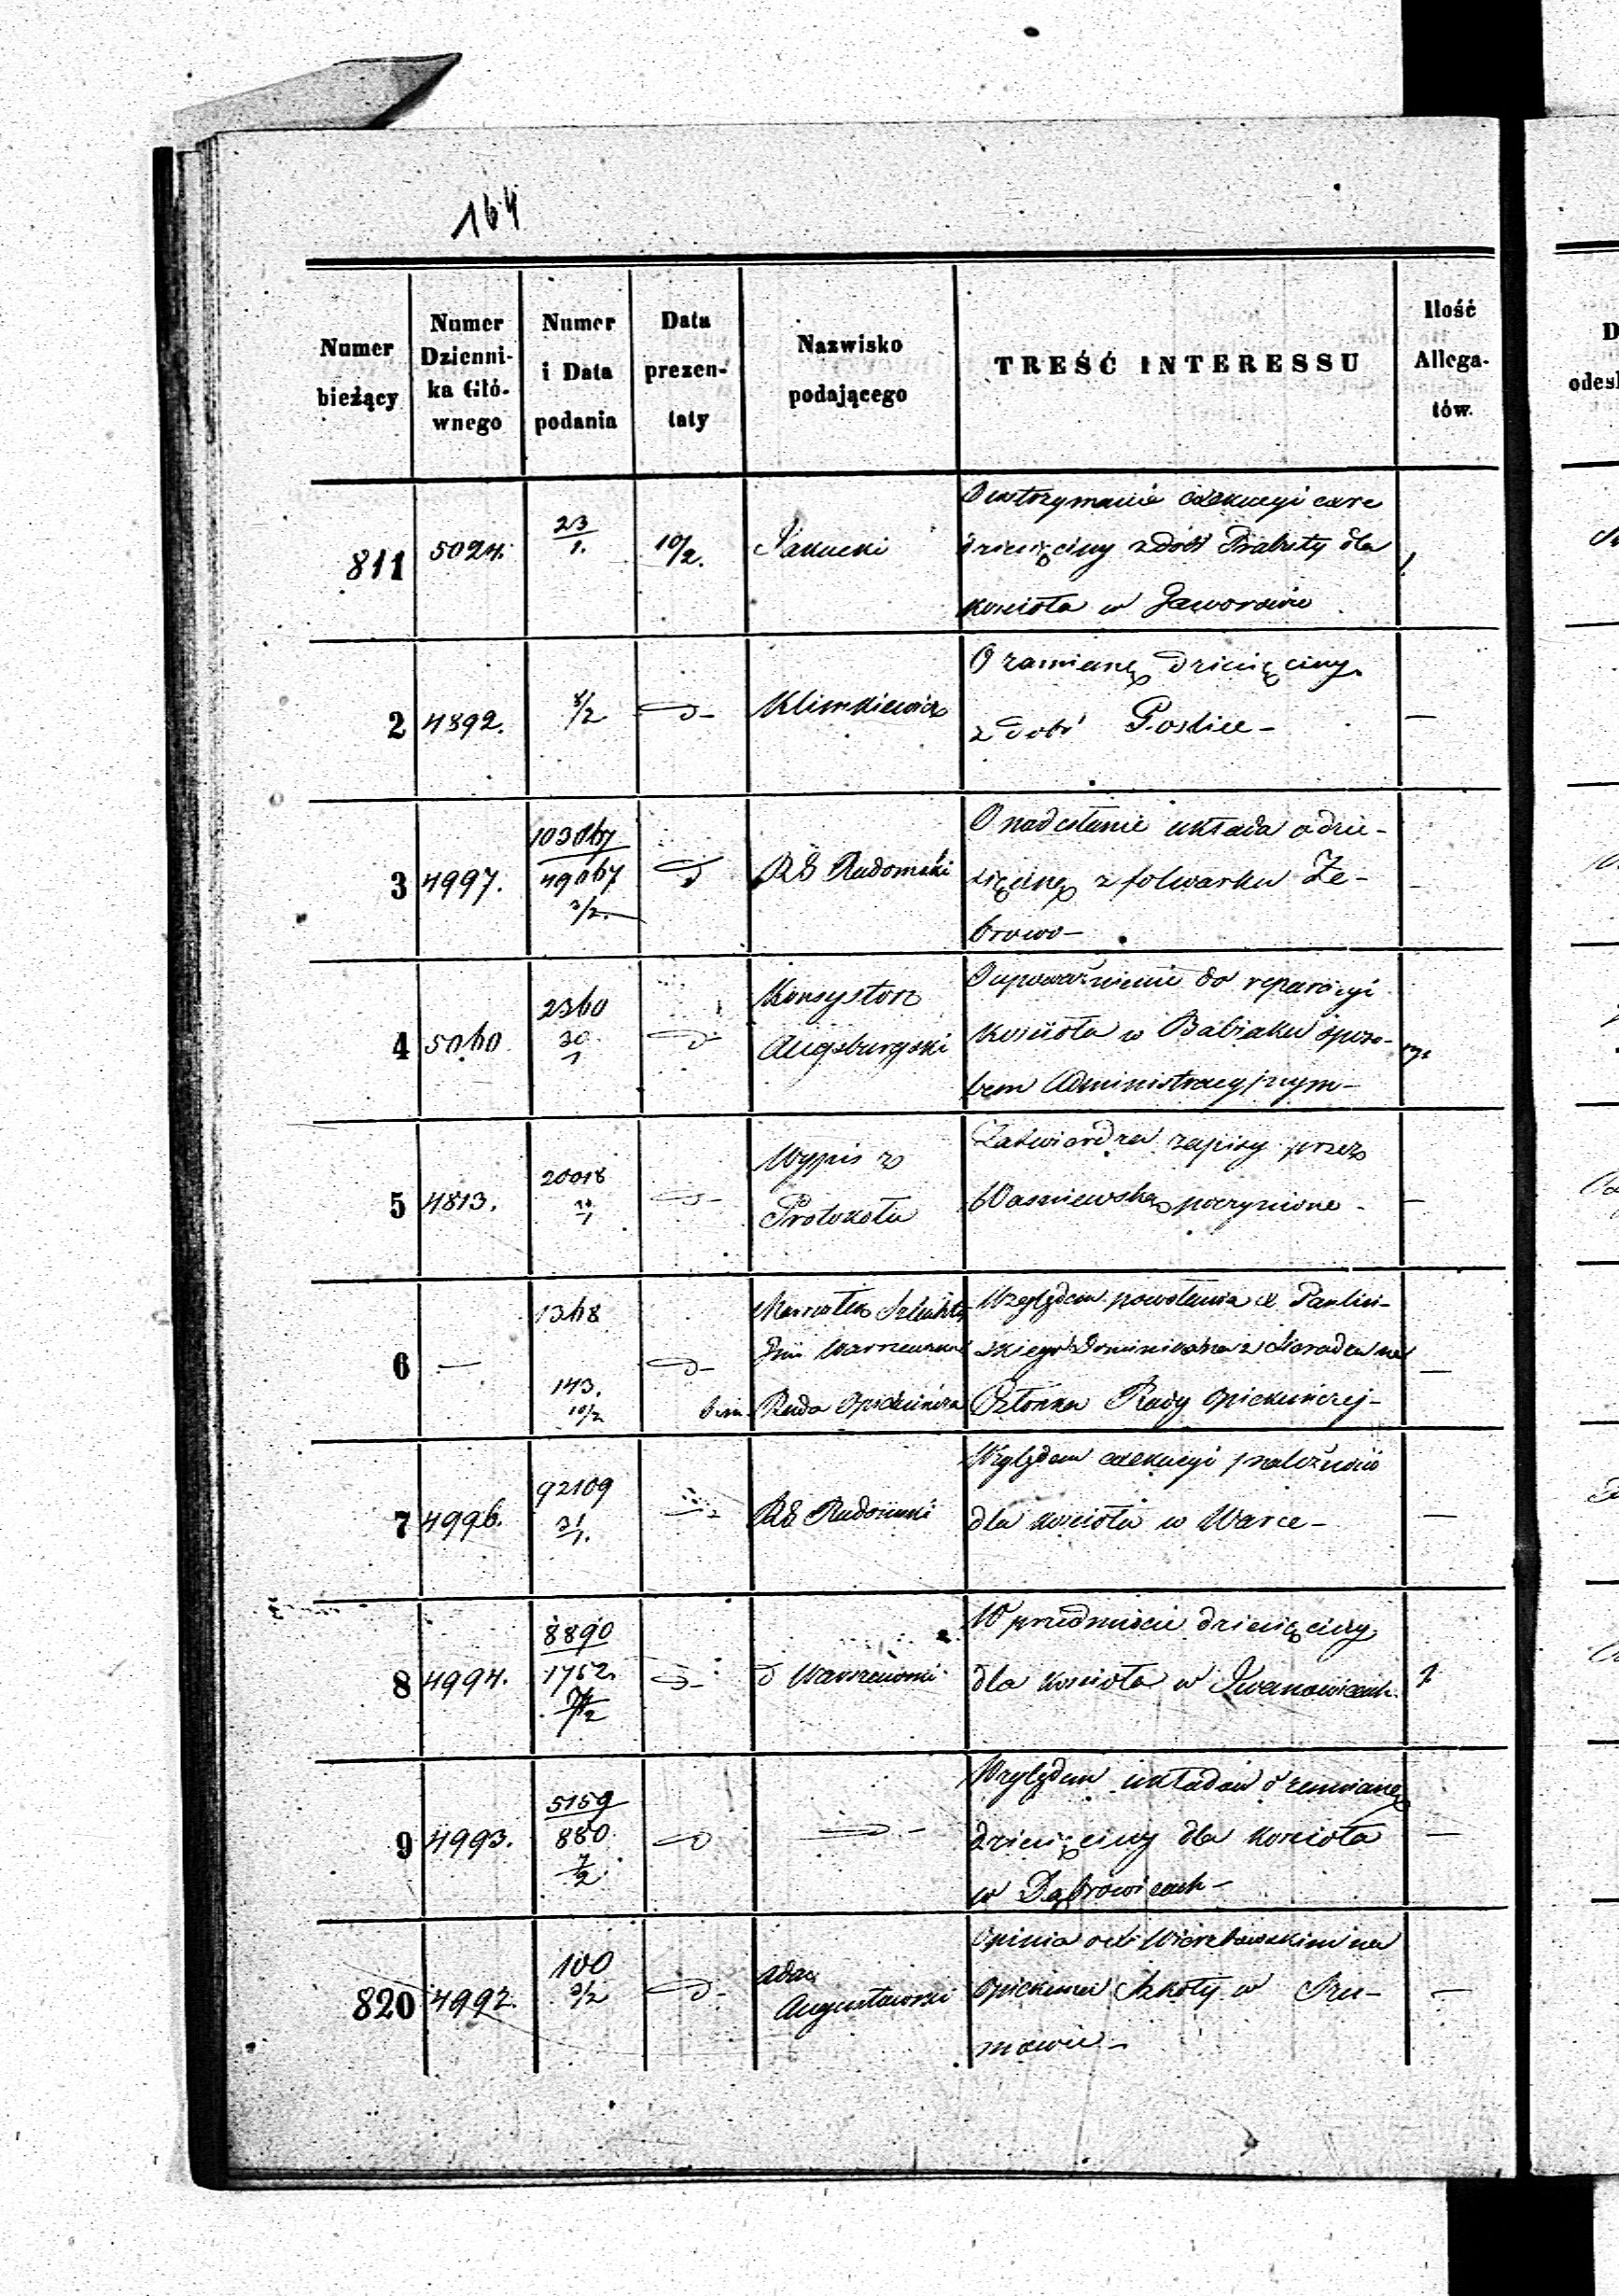 164
Numer bieżący
Numer Dzienni-ka Głó-wnego
Numer i Data podania
Data prezen-taty
Nazwisko podającego
TREŚĆ INTERESSU
Ilość Allega-tów.
811 5024. 23/1. 10/2.
O wstrzymanie exekucyi
dziesięciny z dóbr dla
kościoła w Jaworowie
2 4892. 8/2 Klimkiewicz
O zamianę dziesięciny
z dóbr Goslice –
3 4997. 103067 49067 3/2. RG Radomski
O nadesłanie układu o dzie-
sięcinę z folwarku Że-
browo –
4 5060 2360 30/1 Konsystorz Augsburgski
O upoważnienie do reparacyi
kościoła w Babiaku sposo-
bem administracyjnym –
5 4813. 20018 Wypis z Protokołu
Zatwierdza zapisy przez
poczynione –
6 – 1368 143. 10/2 Marszałek Szlachty Gub Warszawski Rada Opiekuńcza
Względem powołania X Pauliń-
skiego Dominikana z Sieradza na
Członka Rady Opiekuńczej –
7 4996. 92109 31/1. RG Radomski
Względem exekucyi należności
dla kościoła w Warce –
8 4994. 8890 1752. 7/2 Warszawski
W przedmiocie dziesięciny
dla kościoła w Iwanowicach
9 4993. 5159 880 7/2
Względem układów o zamianę
dziesięciny dla kościoła
w Dąbrowicach –
820 4992. 100 9/2 Augustowski
Opinia o Wierzbowskim na
opiekuna Szkoły w